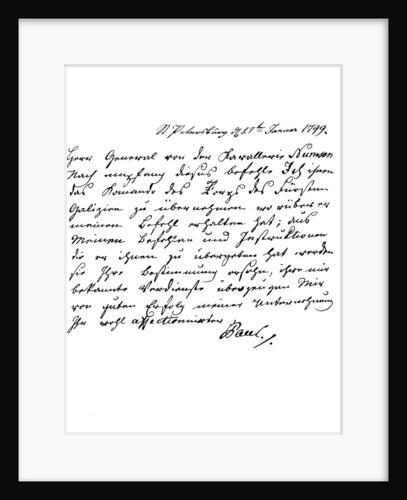 St Petersburg d 27ten Januar 1799.
Herr General von der Kavallerie Numsen
Nach empfang dieses befehle Ich ihnen
das Komando des Korps des Fürsten
Galizien zu übernehmen worüber er
meinen Befehl erhalten hat; aus
Meinen Befehlen und Instruktionen
die er ihnen zu übergeben hat werden
sie Ihre Bestimmung ersehn, ihre mir
bekannte Verdienste überzeugen Mich
von guten Erfolg meiner Unternehmung
Ihr wohl affectionnirter
Paul.